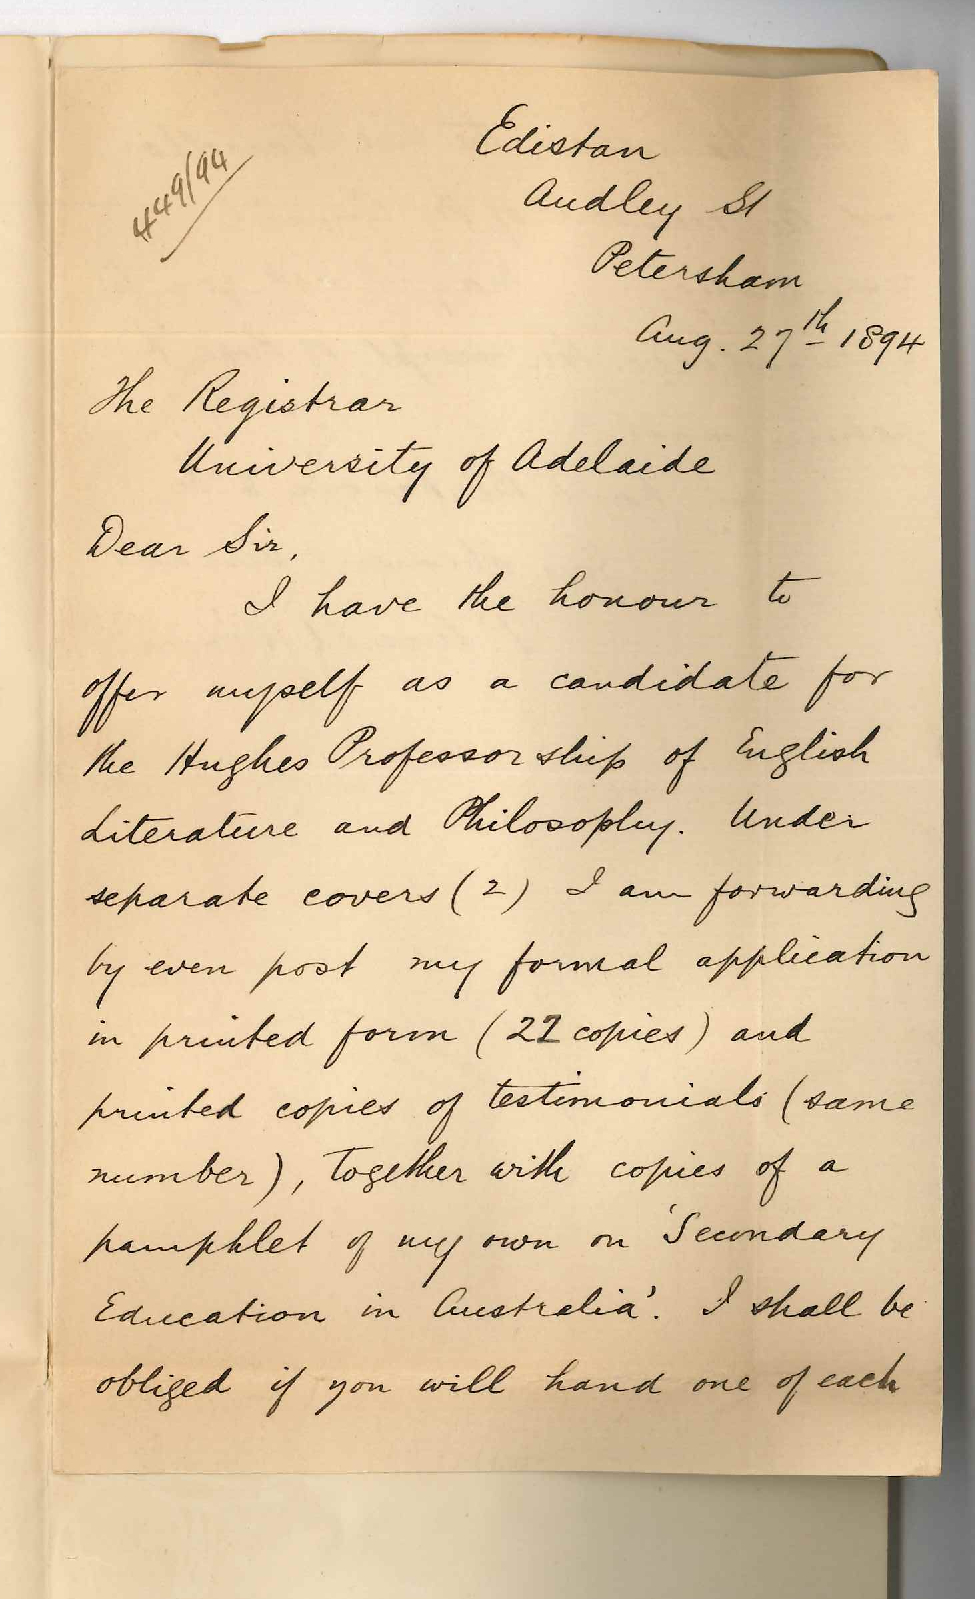 449/94
Edistan
Audley St
Petersham
Aug. 27th 1894
The Registrar
University of Adelaide
Dear Sir,
I have the honour to
offer myself as a candidate for
the Hughes Professorship of English
Literature and Philosophy. Under
separate covers (2) I am forwarding
by even post my formal application
in printed form (22 copies) and
printed copies of testimonials (same
number), together with copies of a
pamphlet of my own on 'Secondary
Education in Australia'. I shall be
obliged if you will hand one of each